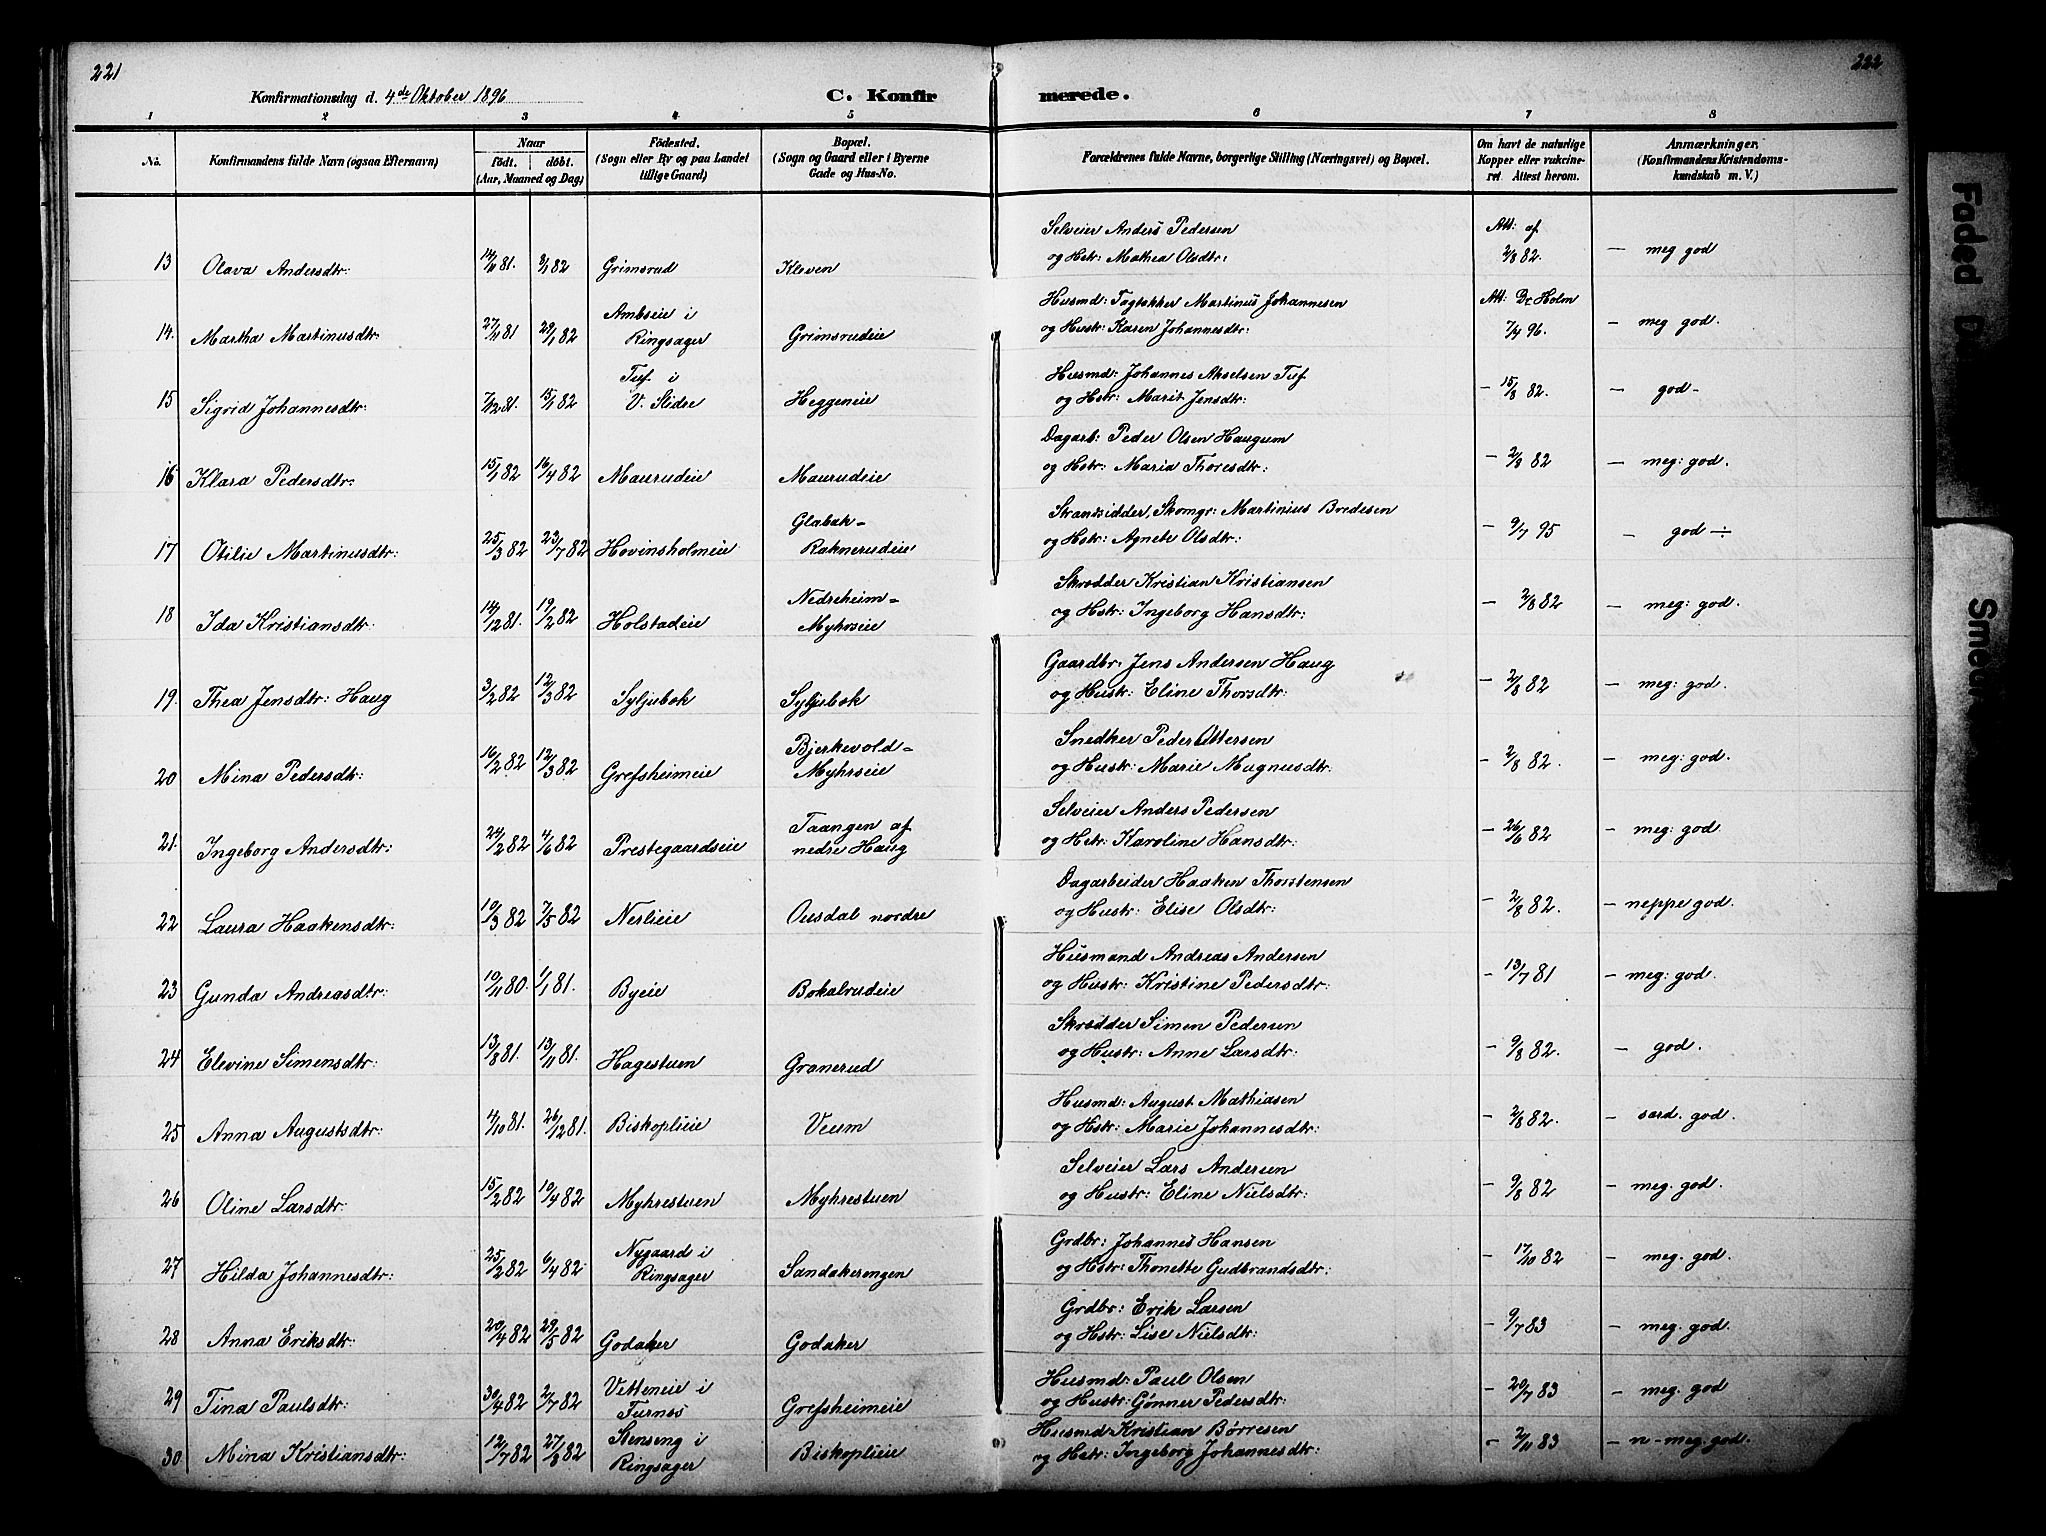 221
222
Konfirmationsdag d. 4de Oktober 1896
C. Konfirmerede.
1 2 3 4 5 6 7 8
No.
Konfirmandens fulde Navn (ogsaa Efternavn)
Naar
født. døbt.
(Aar, Maaned og Dag)
Fødested.
(Sogn eller By og paa Landet
tillige Gaard)
Bopæl.
(Sogn og Gaard eller i Byerne
Gade og Hus-No.
Forældrenes fulde Navne, borgerlige Stilling (Næringsvei) og Bopæl.
Om havt de naturlige
Kopper eller vakcine-
ret Attest herom.
Anmærkninger.
(Konfirmandens Kristendoms-
kundskab m. V.)
Selveier Anders Pedersen Att: af
13 Olava Andersdtr: 14/11 81. 8/1 82 Grimsrud Kleven og Hstr: Mathea Olsdtr: 2/8 82. – meg god
Ambseie i Husmd: Fogtakker Martinus Johannesen Att: Dr Holm
14. Martha Martinusdtr: 27/11 81 29/1 82 Ringsager Grimsrudeie og Hustr: Karen Johannesdtr: 7/4 96. – meg god.
Tuf i Husmd: Johannes Akselsen Tuf
15 Sigrid Johannesdtr: 7/12 81. 15/1 82 V. Slidre Heggeneie og Hstr: Marit Jensdtr: – 15/8 82. – god –
Dagarb: Peder Olsen Haugum
16 Klara Pedersdtr: 15/1 82 16/4 82 Maurudeie Maurudeie og Hstr: Maria Thoresdtr: – 2/8 82 – meg: god.
Glabak- Strandsidder, Skomgr: Martinius Bredesen
17 Otilie Martinusdtr: 25/3 82 23/7 82 Hovinsholmeie Raknerudeie og Hstr: Agnete Olsdtr: – 9/7 95 – god ÷
Nedreheim- Skrædder Kristian Kristiansen
18 Ida Kristiansdtr: 14/12 81. 19/2 82 Holstadeie Myhrseie og Hstr: Ingeborg Hansdtr: – 2/8 82 – meg: god.
Gaardbr: Jens Andersen Haug
19. Thea Jensdtr: Haug 3/2 82 12/3 82 Syljubok Syljubok og Hustr: Eline Thorsdtr: – 2/8 82 – meg: god.
Bjerkevold- Snedker Peder Ottersen
20 Mina Pedersdtr: 16/2 82 12/3 82 Grefsheimeie Myhrseie og Hustr: Marie Magnusdtr: – 2/8 82. – meg: god.
Taangen af Selveier Anders Pedersen
21. Ingeborg Andersdtr: 24/2 82 4/6 82 Prestegaardseie nedre Haug og Hstr: Karoline Hansdtr: – 26/6 82 – meg: god.
Dagarbeider Haaken Thorstensen
22 Laura Haakensdtr: 19/3 82 7/5 82 Nerlieie Ousdal nordre og Hustr: Elise Olsdtr: – 2/8 82. – neppe god.
Husmand Andreas Andersen
23 Gunda Andreasdtr: 19/11 80 1/1 81. Byeie Bokalrudeie og Hustr: Kristine Pedersdtr: – 13/7 81 – meg: god.
Skrædder Simen Pedersen
24 Elevine Simensdtr: 13/8 81. 13/11 81. Hagestuen Granerud og Hustr: Anne Larsdtr: – 9/8 82. – god.
Husmd: August Mathiasen
25 Anna Augustsdtr: 4/10 81. 26/12 81. Biskoplieie Veum og Hstr: Marie Johannesdtr: – 2/8 82. – særd. god.
Selveier Lars Andersen
26 Oline Larsdtr: 15/2 82 10/4 82 Myhrestuen Myhrestuen og Hustr: Eline Nielsdtr: – 9/8 82 – meg. god.
Nygaard i Grdbr: Johannes Hansen
27 Hilda Johannesdtr: 25/2 82 6/4 82 Ringsager Sandakerengen og Hstr: Thonette Gudbrandsdtr: – 17/10 82 – meg. god.
Grdbr: Erik Larsen
28 Anna Eriksdtr: 20/4 82 29/5 82 Godaker Godaker og Hstr: Lise Nielsdtr: – 9/7 83 – meg. god.
Vetteneie i Husmd: Paul Olsen
29 Tina Paulsdtr: 30/4 82 2/7 82 Furnes Grefsheimeie og Hustr: Gønner Pedersdtr: – 20/7 83 – meg. god
Stenseng i Husmd Kristian Børresen
30 Mina Kristiansdtr: 12/7 82 27/8 82 Ringsager Biskoplieie og Hstr: Ingeborg Johannesdtr: – 2/11 83 – n-meg. god.
Faded D
Smeu